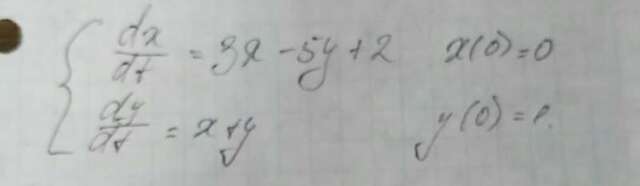 dx/dt = 3x - 5y + 2 x(0)=0
dy/dt = x+y y(0)=